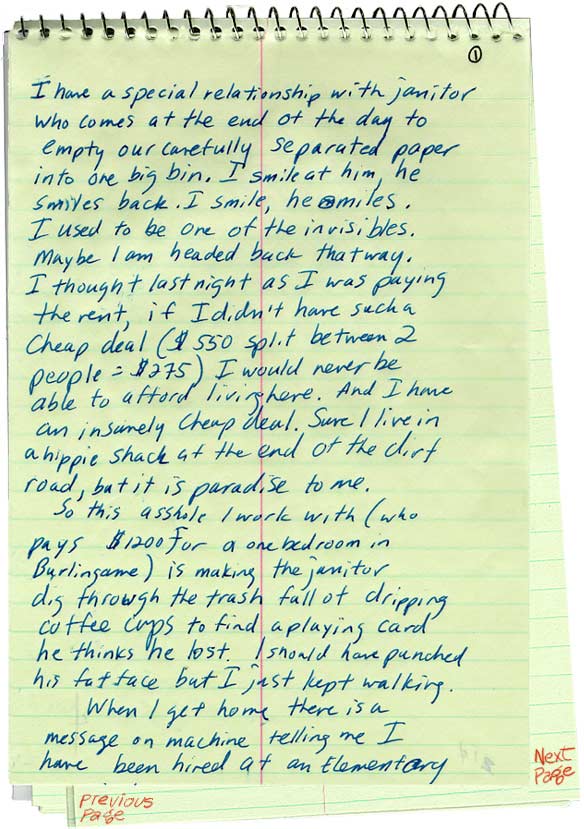 ①
I have a special relationship with janitor
who comes at the end of the day to
empty our carefully separated paper
into one big bin. I smile at him, he
smiles back. I smile, he smiles.
I used to be one of the invisibles.
Maybe I am headed back that way.
I thought last night as I was paying
the rent, if I didn't have such a
cheap deal ($550 split between 2
people = $275) I would never be
able to afford living here. And I have
an insanely cheap deal. Sure I live in
a hippie shack at the end of the dirt
road, but it is paradise to me.
So this asshole I work with (who
pays $1200 for a one bedroom in
Burlingame) is making the janitor
dig through the trash full of dripping
coffee cups to find a playing card
he thinks he lost. I should have punched
his fat face but I just kept walking.
When I get home there is a
message on machine telling me I
have been hired at an Elementary
Next
Page
Previous
Page